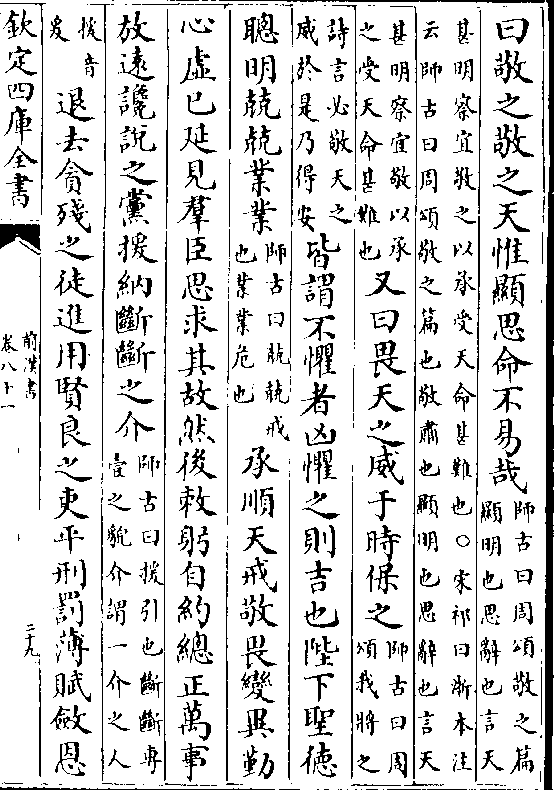 曰敬之敬之天惟顯思命不易哉師古曰周頌敬之篇
顯明也思辭也言天
甚明察宜敬之以承受天命甚難也○宋祁曰浙本注
云師古曰周頌敬之篇也敬肅也顯明也思辭也言天
甚明察宜敬以承
之受天命甚難也又曰畏天之威于時保之師古曰周
頌我將之
詩言必敬天之
威於是乃得安皆謂不懼者凶懼之則吉也陛下聖德
聰明兢兢業業師古曰兢兢戒
也業業危也承順天戒敬畏變異勤
心虛已延見羣臣思求其故然後敕躬自約總正萬事
放遠讒說之黨援納斷斷之介師古曰援引也斷斷專
壹之貌介謂一介之人
援音
爰退去貪殘之徒進用賢良之吏平刑罰薄賦斂恩
欽定四庫全書
前漢書
卷八十一
二十九